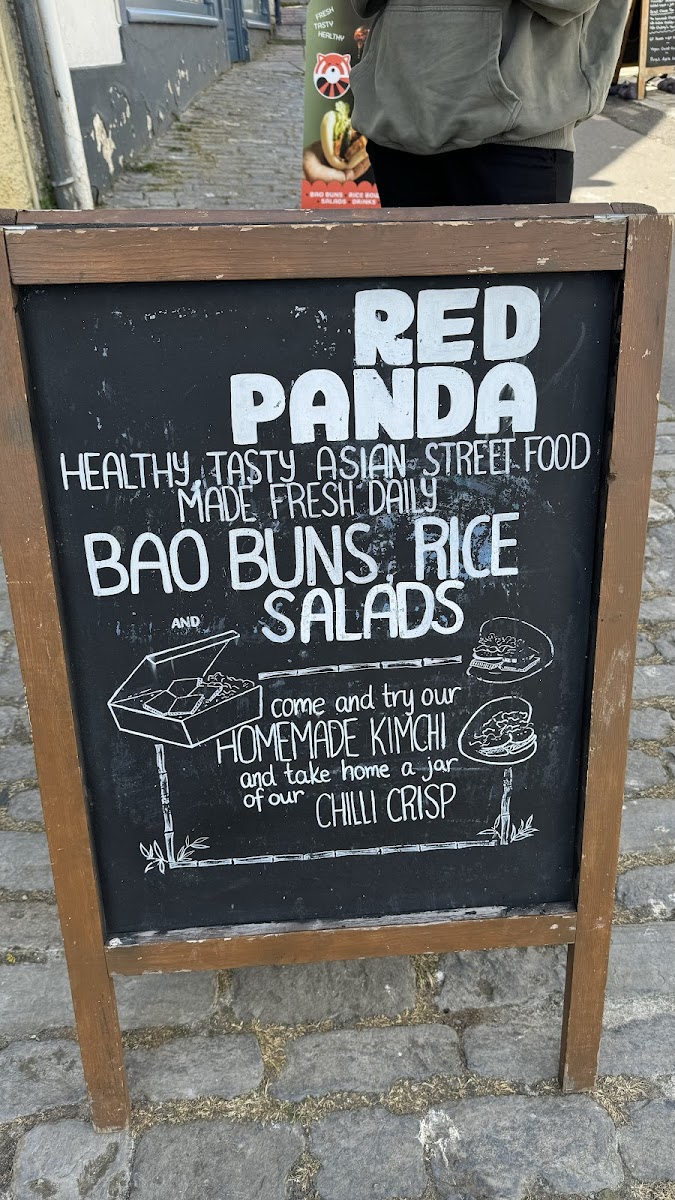 FRESH
TASTY
HEALTHY
BAO BUNS
SALADS DRINKS
RED
PANDA
HEALTHY, TASTY ASIAN STREET FOOD
MADE FRESH DAILY
BAO BUNS, RICE
AND SALADS
come and try our
HOMEMADE KIMCHI
and take home a jar
of our CHILLI CRISP